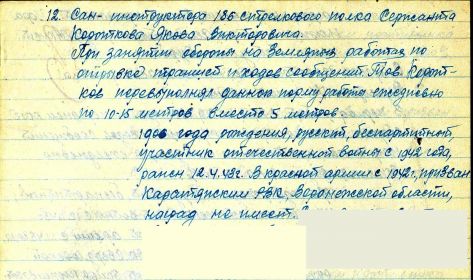 12. Сан-инструктора 136 стрелкового полка Сержанта
Короткова Якова Викторовича.
При занятии обороны на Земляных работах по
отрывке траншей и ходов сообщений Тов. Корот-
ков перевыполнял данную норму работы ежедневно
по 10-15 метров вместо 5 метров
1906 года рождения, русский, беспартийный,
участник отечественной войны с 1942 года,
ранен 12.4.43г. В красной армии с 1942г, призван
РВК, Воронежской области,
наград не имеет.